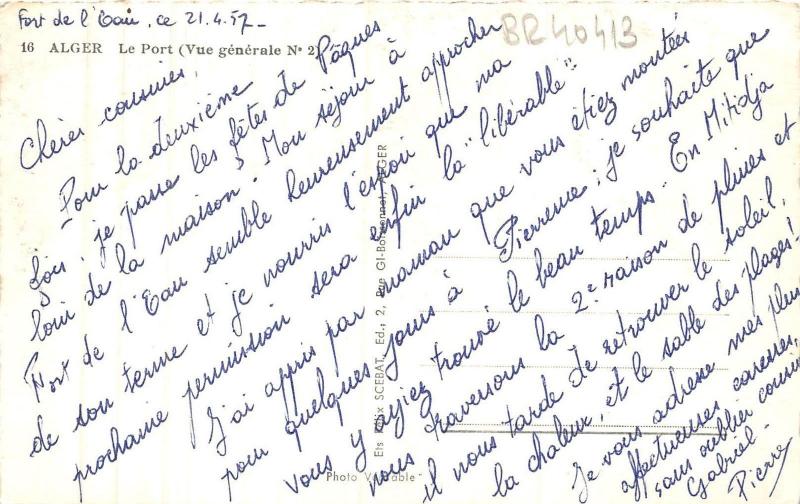 Fort de l'Eau, ce 21.4.57_
BR40413
16 ALGER Le Port (Vue générale N° 2)
Chères cousines,
Pour la deuxième
fois, je passe les fêtes de Pâques
loin de la maison. Mon séjour à
Fort de l'Eau semble heureusement approcher
de son terme et je nourris l'espoir que ma
prochaine permission sera enfin la "libérable".
J'ai appris par maman que vous étiez montées
pour quelques jours à Pierreme ; je souhaite que
vous y ayiez trouvé le beau temps. En Mitidja
nous traversons la 2e saison de pluies et
il nous tarde de retrouver le soleil,
la chaleur, et le sable des plages !
Je vous adresse mes plus
affectueuses caresses,
sans oublier cousin
Gabriel_
Pierre
Ets Félix SCEBAT, Ed., 2, Rue Gl-Boissonnet, ALGER
Photo Véritable